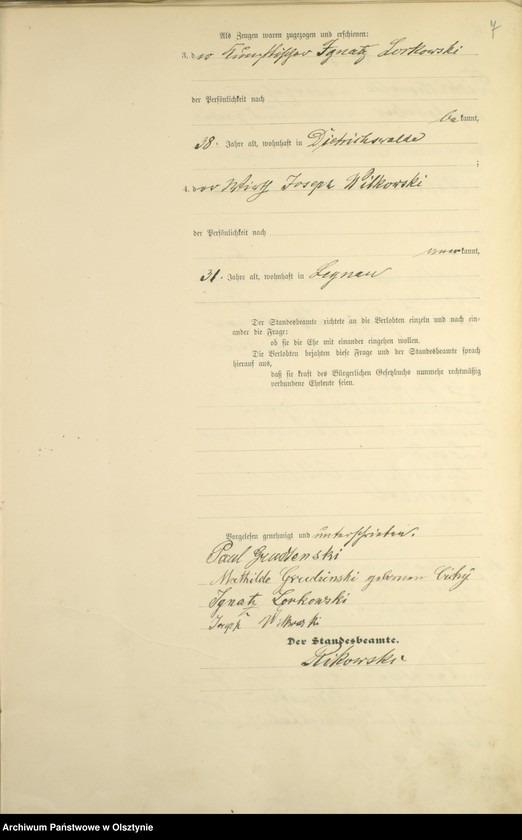 7
Als Zeugen waren zugezogen und erschienen:
3. der Kunsttischler Ignatz Lorkowski
der Persönlichkeit nach
bekannt,
38 Jahre alt, wohnhaft in Dietrichswalde
;
4. der Wirth Joseph Witkowski
der Persönlichkeit nach
kannt,
31 Jahre alt, wohnhaft in Leynau
Der Standesbeamte richtete an die Verlobten einzeln und nach ein-
ander die Frage:
ob sie die Ehe mit einander eingehen wollen.
Die Verlobten bejahten diese Frage und der Standesbeamte sprach
hierauf aus,
daß sie kraft des Bürgerlichen Gesetzbuchs nunmehr rechtmäßig
verbundene Eheleute seien.
Vorgelesen genehmigt und unterschrieben.
Paul
Mathilde geborenen
Ignatz Lorkowski
Joseph Witkowski
Der Standesbeamte.
Archiwum Państwowe w Olsztynie